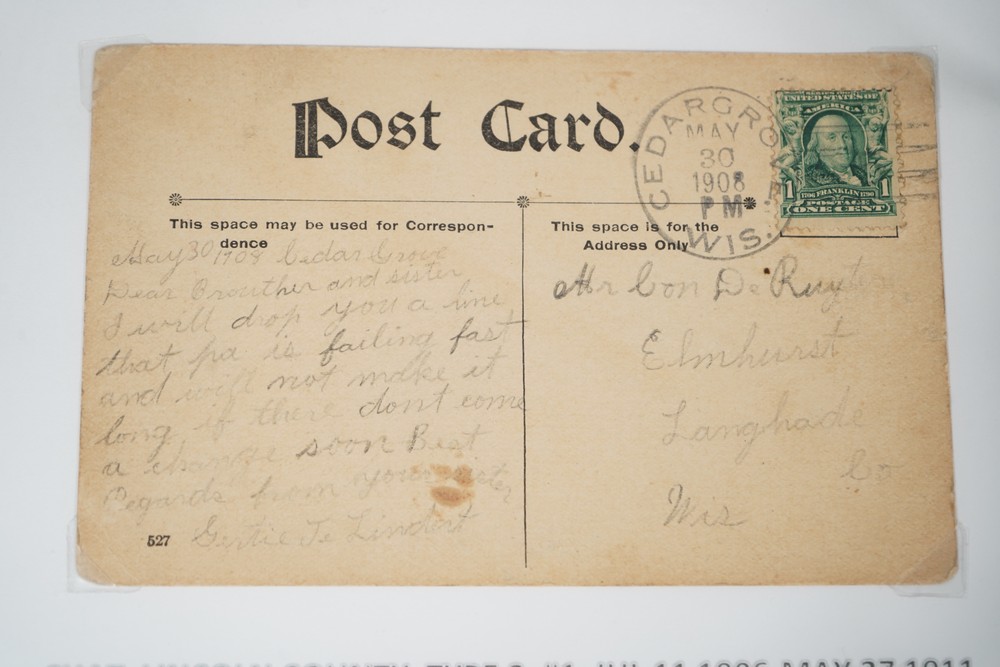 Post Card.
CEDARGROVE
MAY
30
1908
PM
WIS.
UNITED STATES OF
AMERICA
1 1706 FRANKLIN 1790 1
POSTAGE
ONE CENT
This space may be used for Correspon-
dence
This space is for the
Address Only
May 30 1908 Cedar Grove
Dear Brouther and sister
I will drop you a line
that pa is failing fast
and will not make it
long if there dont come
a change soon Best
Regards from your sister
Gertie Te Lindert
527
Mr Con De Ruyter
Elmhurst
Langhade
Co
Wis